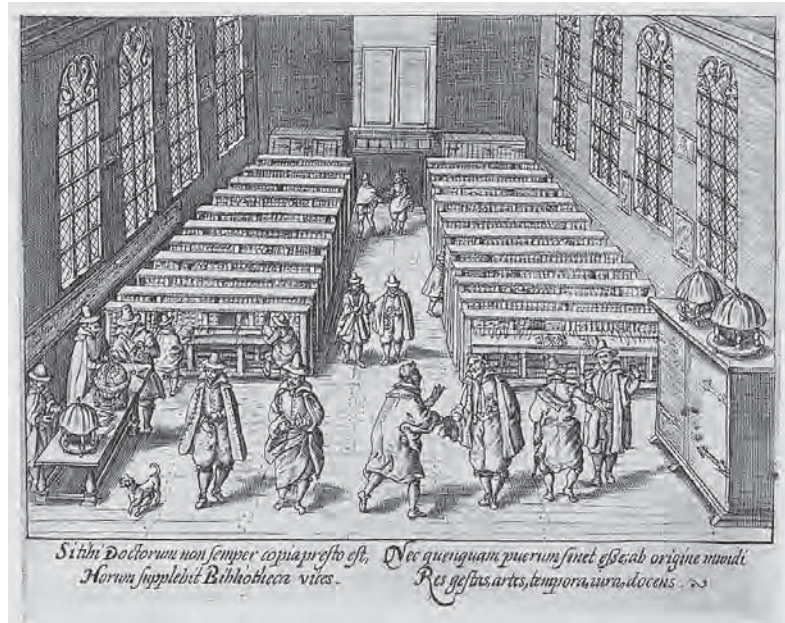 Si tibi Doctorum non semper copia præsto est,
Horum supplebit Bibliotheca vices.
Nec quenquam puerum sinet esse, ab origine mundi
Res gestas, artes, tempora, iura, docens.